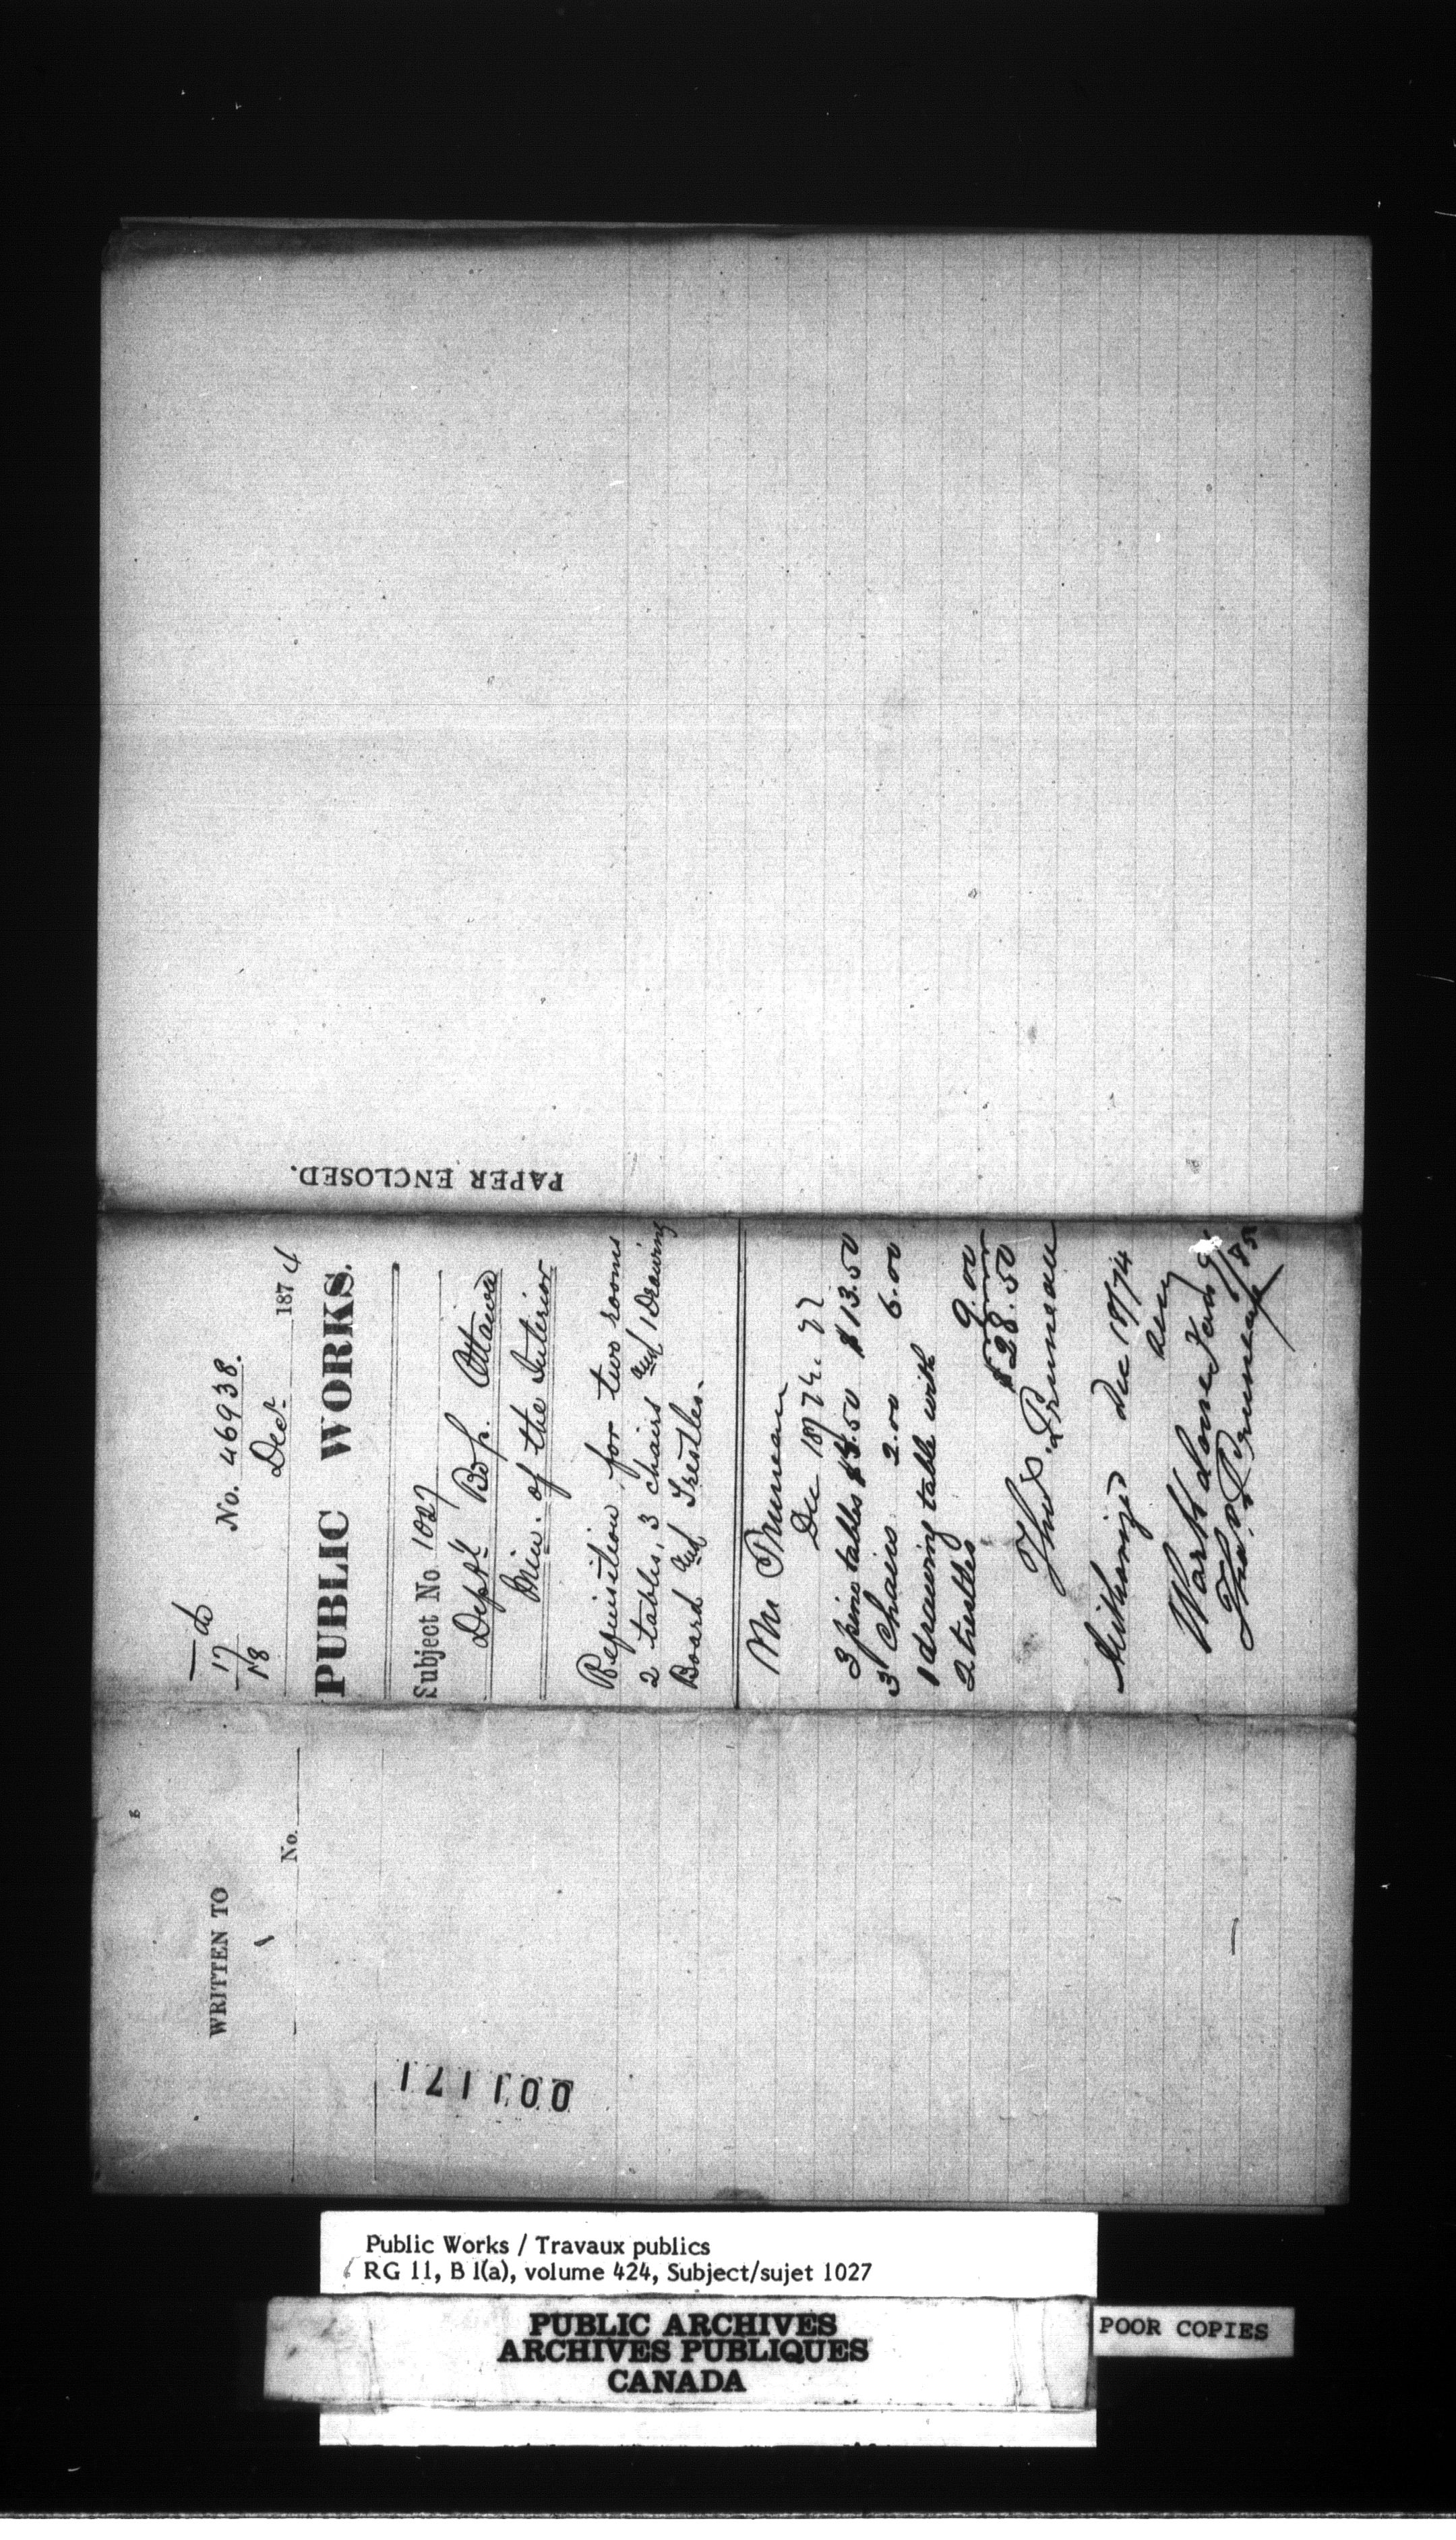 17
18
No. 46938.
Decr
1874
PUBLIC WORKS.
Subject No. 1027
Deptl Bdgs. Ottawa
Min. of the Interior
Requisition for two rooms
2 tables, 3 chairs and 1 Drawing
Board and Trestles.
Mr Bruneau
Dec 18/74.
3 pine tables $4.50 $13.50
3 Chairs 2.00 6.00
1 drawing table with
2 trestles 9.00
$28.50
Authorized Dec 18/74
Work done
PAPER ENCLOSED.
WRITTEN TO
No.
001171
Public Works / Travaux publics
RG 11, B 1(a), volume 424, Subject/sujet 1027
PUBLIC ARCHIVES
ARCHIVES PUBLIQUES
CANADA
POOR COPIES